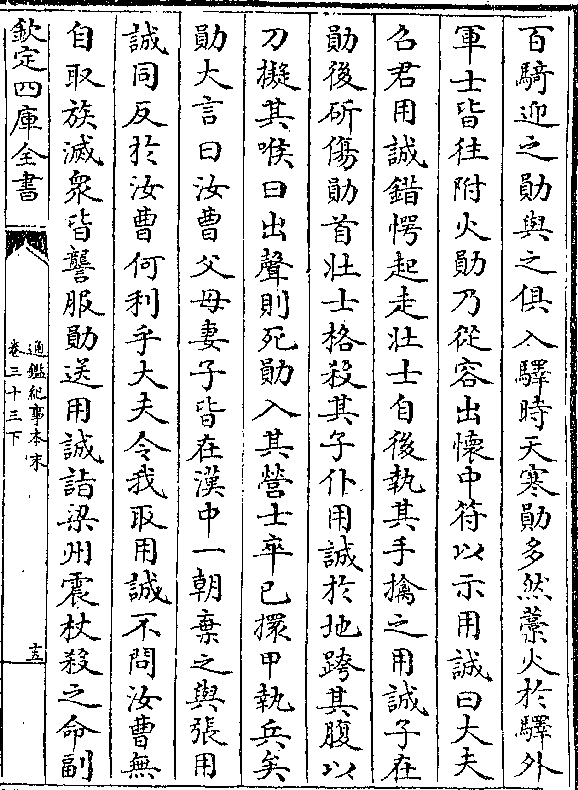 百騎迎之勛與之俱入驛時天寒勛多然藁火於驛外
軍士皆往附火勛乃從容出懷中符以示用誠曰大夫
召君用誠錯愕起走壯士自後執其手擒之用誠子在
勛後斫傷勛首壯士格殺其子仆用誠於地跨其腹以
刀擬其喉曰出聲則死勛入其營士卒已擐甲執兵矣
勛大言曰汝曹父母妻子皆在漢中一朝棄之與張用
誠同反於汝曹何利乎大夫令我取用誠不問汝曹無
自取族滅衆皆讋服勛送用誠詣梁州震杖殺之命副
欽定四庫全書
通鑑紀事本末
卷三十三下
十五